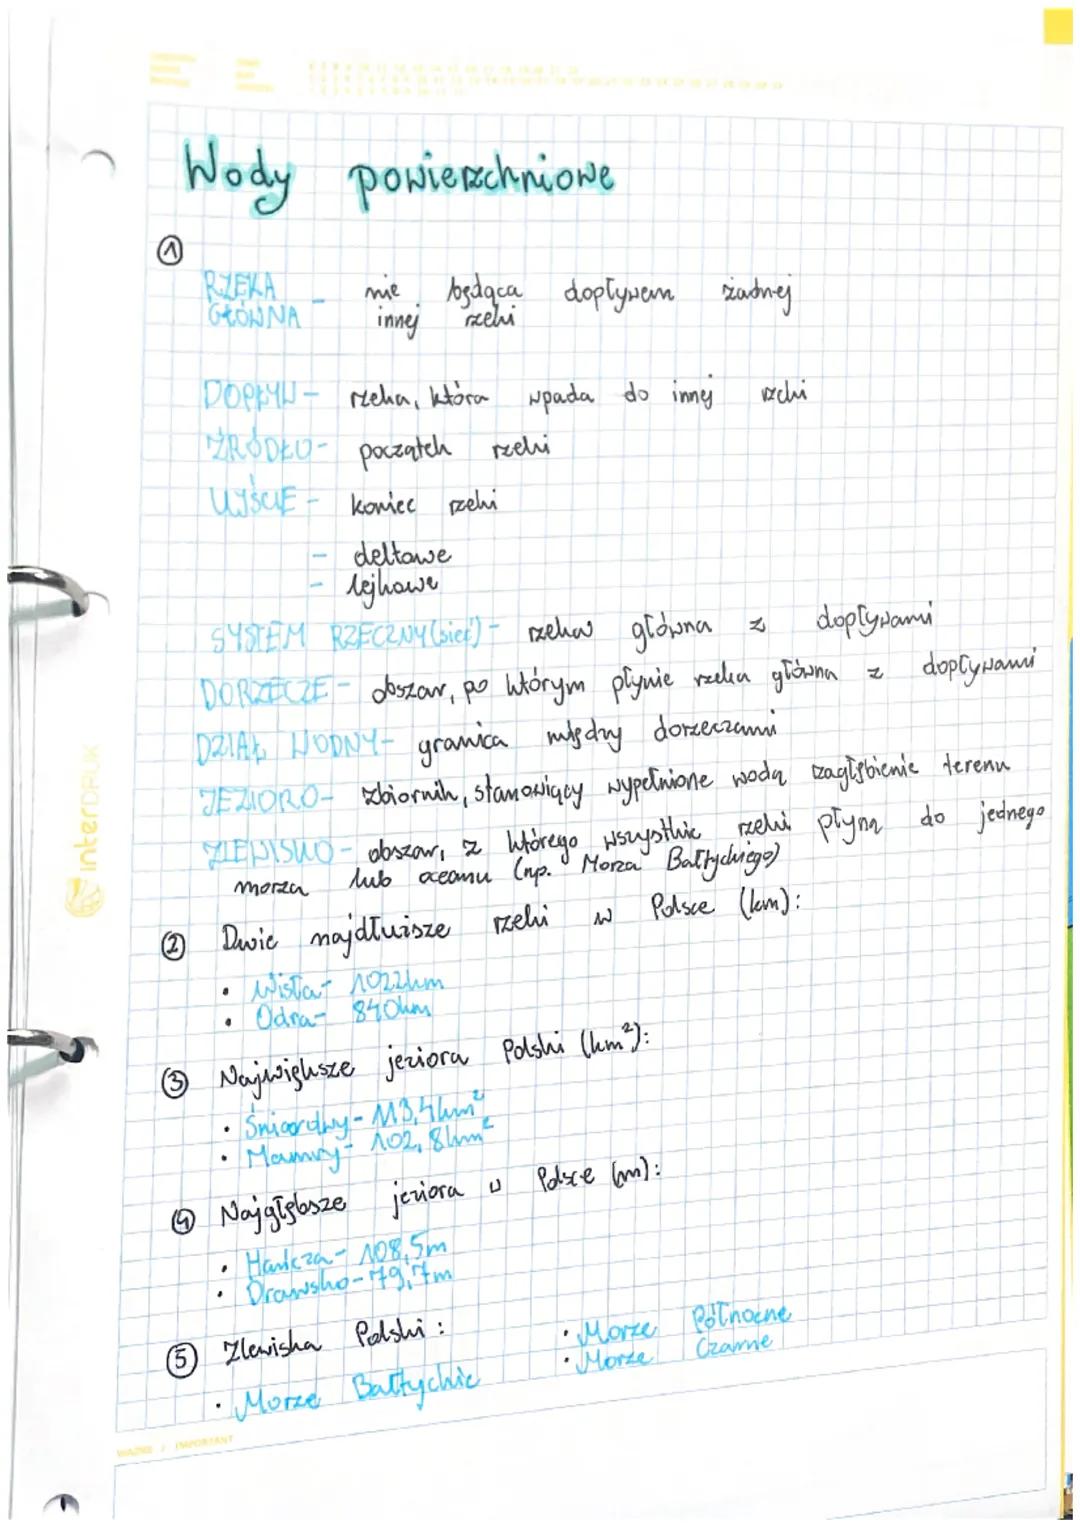 Wody powierzchniowe
①
RZEKA GŁÓWNA - nie będąca dopływem żadnej
innej rzeki
DOPŁYW - rzeka, która wpada do innej rzeki
ŹRÓDŁO - początek rzeki
UJŚCIE - koniec rzeki
- deltowe
- lejkowe
SYSTEM RZECZNY (sieć) - rzeka główna z dopływami
DORZECZE - obszar, po którym płynie rzeka główna z dopływami
DZIAŁ WODNY - granica między dorzeczami
JEZIORO - zbiornik, stanowiący wypełnione wodą zagłębienie terenu
ZLEWISKO - obszar, z którego wszystkie rzeki płyną do jednego
morza lub oceanu (np. Morza Bałtyckiego)
② Dwie najdłuższe rzeki w Polsce (km):
• Wisła - 1022km
• Odra - 840km
③ Największe jeziora Polski (km²):
• Śniardwy - 113,4km²
• Mamry - 102,8km²
④ Najgłębsze jeziora w Polsce (m):
• Hańcza - 108,5m
• Drawsko - 79,7m
⑤ Zlewiska Polski:
• Morze Bałtyckie
• Morze Północne
• Morze Czarne
interDRUK
WAŻNE / IMPORTANT